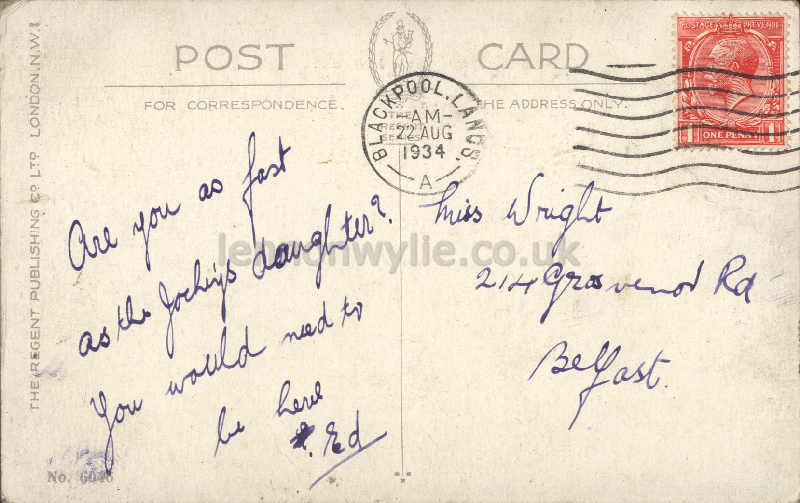 POST CARD
FOR CORRESPONDENCE. THE ADDRESS ONLY.
THE REGENT SERIES
BLACKPOOL. LANCS.
AM-
22 AUG
1934
A
POSTAGE REVENUE
1 ONE PENNY 1
THE REGENT PUBLISHING CO LTD LONDON. N.W.1
Are you as fast
as the Jockeys daughter?
You would need to
be here
Ed
Miss Wright
214 Grosvenor Rd
Belfast.
No. 6046
lennonwylie.co.uk